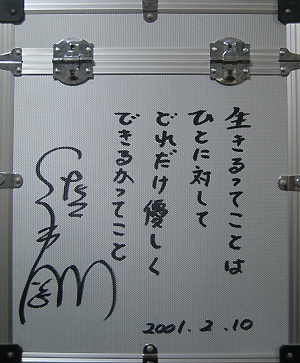 生きるってことは
ひとに対して
どれだけ優しく
できるかってこと
2001.2.10